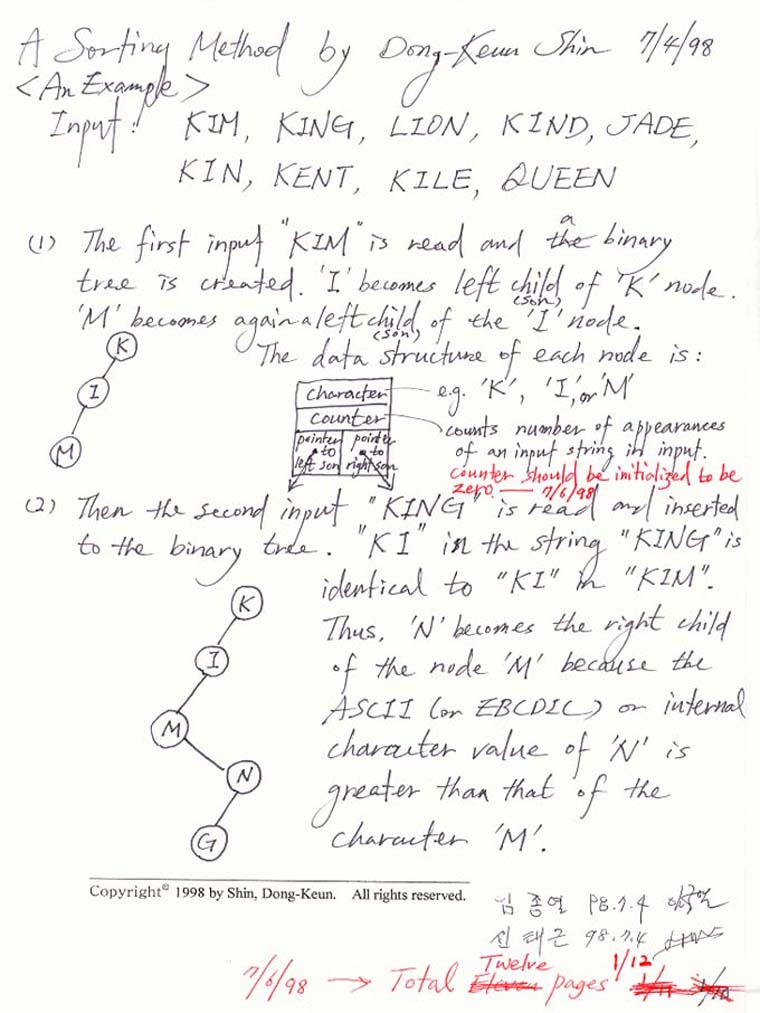 A Sorting Method by Dong-Keun Shin 7/4/98
<An Example>
Input: KIM, KING, LION, KIND, JADE,
KIN, KENT, KILE, QUEEN
(1) The first input "KIM" is read and the a binary
tree is created. 'I' becomes left child (son) of 'K' node.
'M' becomes again a left child (son) of the 'I' node.
K
I
M
The data structure of each node is:
character e.g. 'K', 'I', or 'M'
counter counts number of appearances
of an input string in input.
pointer to left son
pointer to right son
counter should be initialized to be
zero. — 7/6/98
(2) Then the second input "KING" is read and inserted
to the binary tree. "KI" in the string "KING" is
identical to "KI" in "KIM".
Thus, 'N' becomes the right child
of the node 'M' because the
ASCII (or EBCDIC) or internal
character value of 'N' is
greater than that of the
character 'M'.
K
I
M
N
G
Copyright© 1998 by Shin, Dong-Keun. All rights reserved.
임종열 98.7.4
신태근 98.7.4
7/6/98 → Total Eleven Twelve pages 1/12
1/11